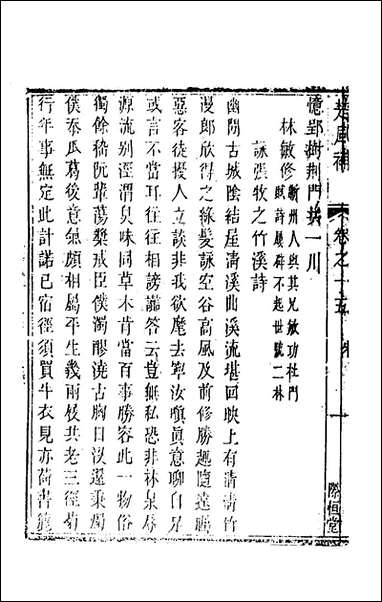 楚風補 卷之十五 宋
際恒堂
憶郢樹荆門共一川
林敏修 蘄州人與其兄敏功杜門
賦詩屢辟不起世號二林
詠張牧之竹溪詩
幽閒古城陰結屋清溪曲溪流堪回映上有清清竹
漫郎欣得之綠髮詠空谷高風及前修勝趣隨遠矚
惡客徒擾人立談非我欲麾去寧汝嗔真意聊自足
或言不當耳往往謗答云豈無私恐非林泉辱
源流别涇渭臭味同草木肯當百事勝容此一物俗
獨餘嵇阮輩蕩槳戒臣僕濁醪澆古胸日沒還秉燭
僕忝瓜葛後意氣頗相屬平生幾兩屐共老三徑菊
行年事無定此計諾已宿徑須買牛衣見亦荷書簏